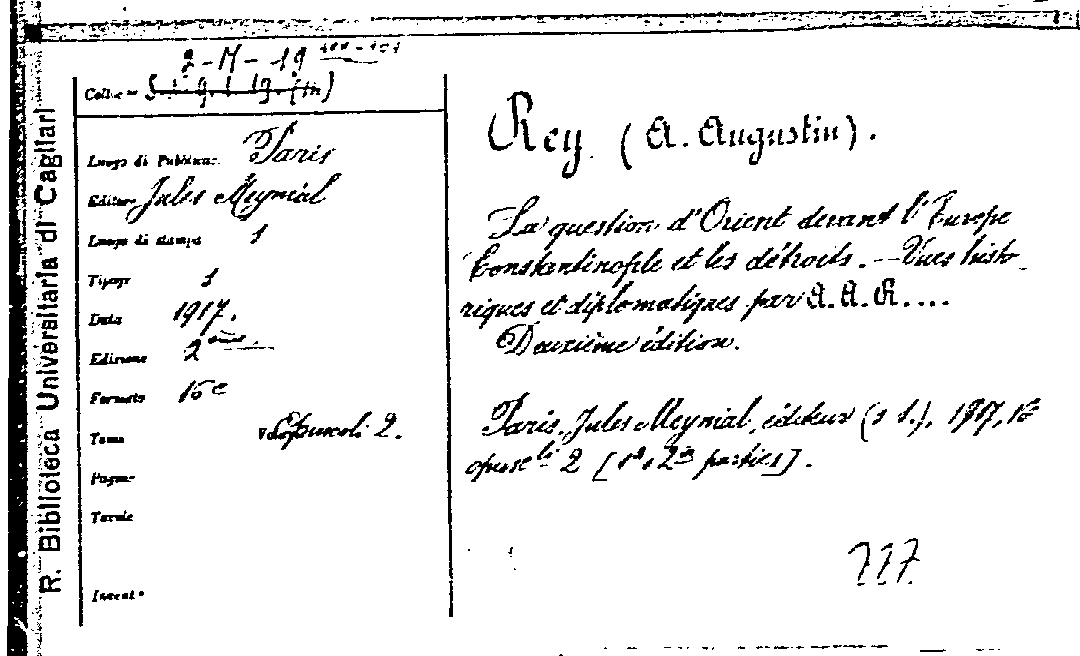 R. Biblioteca Universitaria di Cagliari
2-M-19
Colloc.ne
Luogo di Pubblicaz. Paris
Editore Jules Meynial
Luogo di stampa 1
Tipogr 1
Data 1917.
Edizione 2ème
Formato 16°
Tomo Opuscoli 2.
Pagine
Tavole
Invent.
Rey (A. Augustin).
La question d'Orient devant l'Europe
Constantinople et les détroits. — Vues histo-
riques et diplomatiques par A. A. R....
Deuxième édition.
Paris, Jules Meynial, éditeur (s l.), 1917, 16°
opuscli 2 [1e, 2e parties].